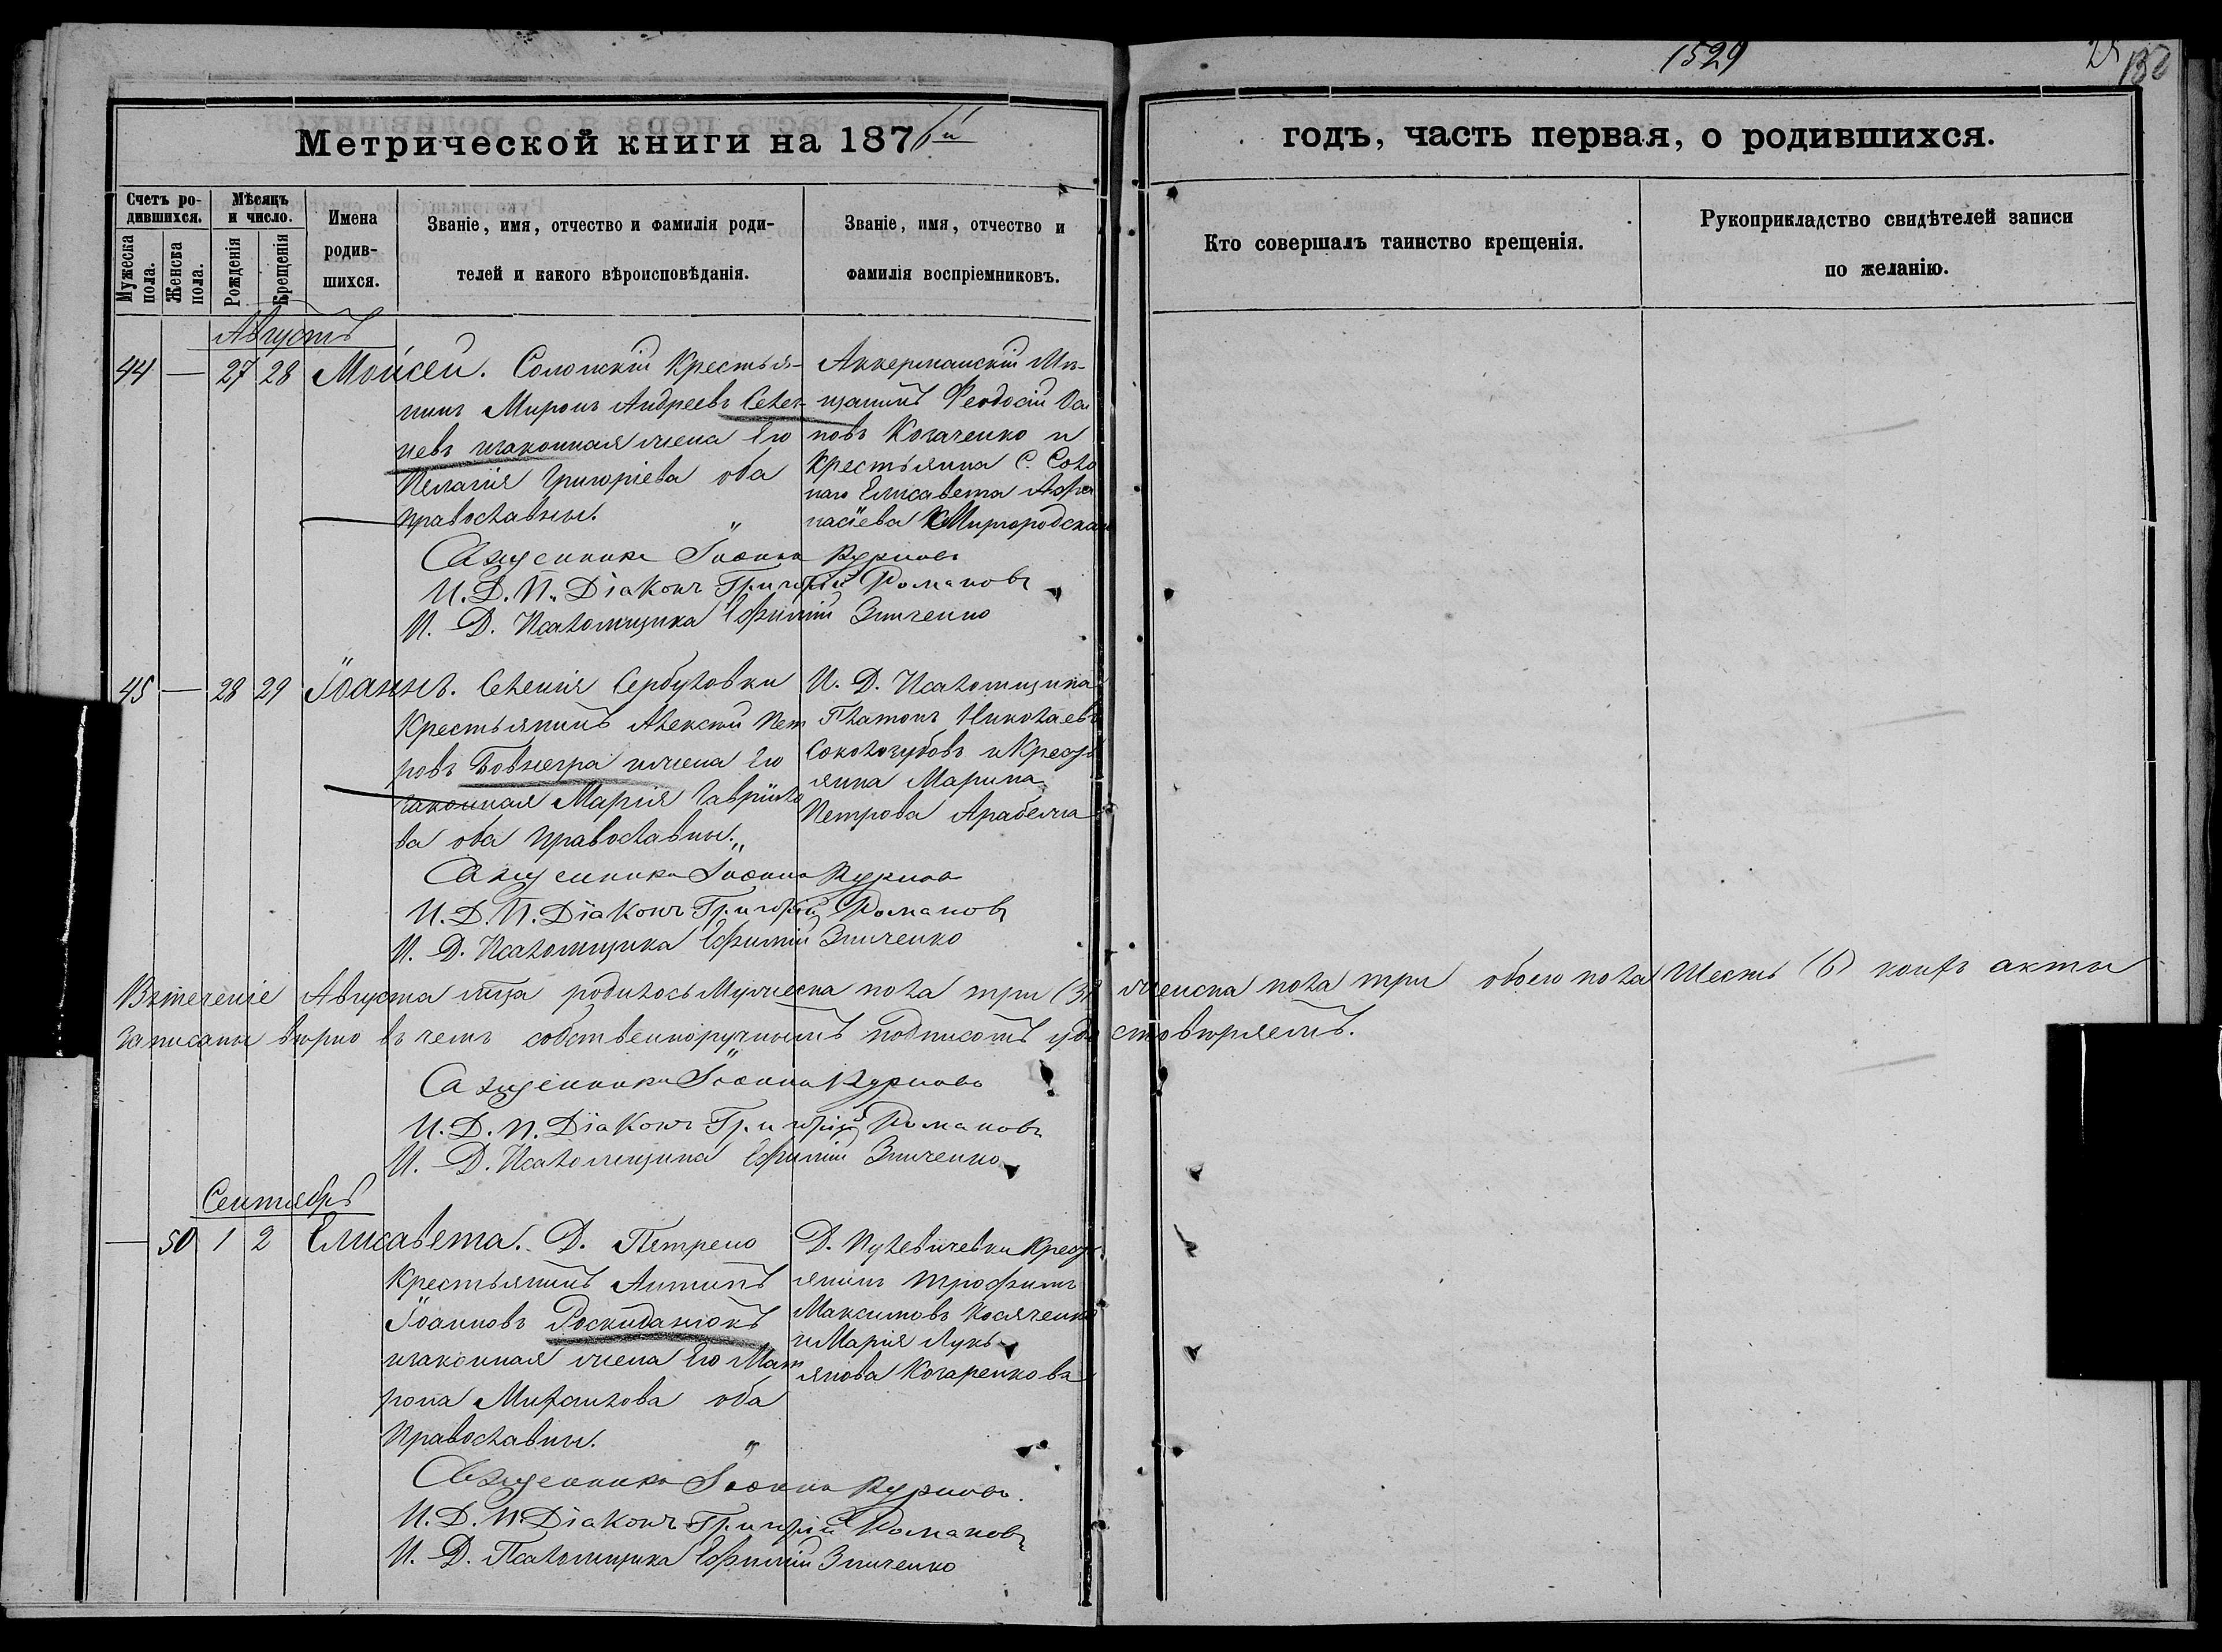 1529
Метрической книги на 1876й
годъ, часть первая, о родившихся.
Счетъ родившихся.
Мѣсяцъ и число.
Мужеска пола.
Женска пола.
Рожденія
Крещенія
Имена родившихся.
Званіе, имя, отчество и фамилія родителей и какого вѣроисповѣданія.
Званіе, имя, отчество и фамилія воспріемниковъ.
Кто совершалъ таинство крещенія.
Рукоприкладство свидѣтелей записи по желанію.
Августъ
44 — 27 28 Моѵсей.
Крестья-
нинъ Миронъ Андреевъ
изаконная жена Его
Пелагія Григоріева оба
православные.
Аккерманскій Мѣ-
щанинъ Феодосій
новъ Когаченко и
крестьянка С.
Елисавета Афа
насіева Миргородская
Священникъ Іоаннъ Курповъ
И. Д. П. Діаконъ Григорій Романовъ
И. Д. Псаломщика Ефимій Зинченко
45 — 28 29 Іоаннъ. Селенія Сербуловки
Крестьянинъ Алексѣй Пет
ровъ Бовнегра ижена Его
законная Марія Гавріило
ва оба Православные.
И. Д. Псаломщика
Платонъ Николаевъ
Сокологубовъ и Крестья
янка Марина
Петрова
Священникъ Іоаннъ Курповъ
И. Д. П. Діаконъ Григорій Романовъ
И. Д. Псаломщика Ефимій Зинченко
Втеченіе Августа мца родилось Мужеска пола три (3) женска пола три обоего пола Шесть (6) коихъ акты
записаны вѣрно въ чемъ собственноручнымъ подписомъ удостовѣряемъ.
Священникъ Іоаннъ Курповъ
И. Д. П. Діаконъ Григорій Романовъ
И. Д. Псаломщика Ефимій Зинченко
Сентябрь
— 50 1 2 Елисавета. Д. Петрено
Крестьянинъ Антипъ
Іоанновъ Роскиданюкъ
изаконная жена Его Мат
рона Михаилова оба
Православные.
Д. Кресть
янинъ Трофимъ
Максимовъ Косяченко
и Марія Лукь
янова Когаренкова
Священникъ Іоаннъ Курповъ.
И. Д. П. Діаконъ Григорій Романовъ
И. Д. Псаломщика Ефимій Зинченко